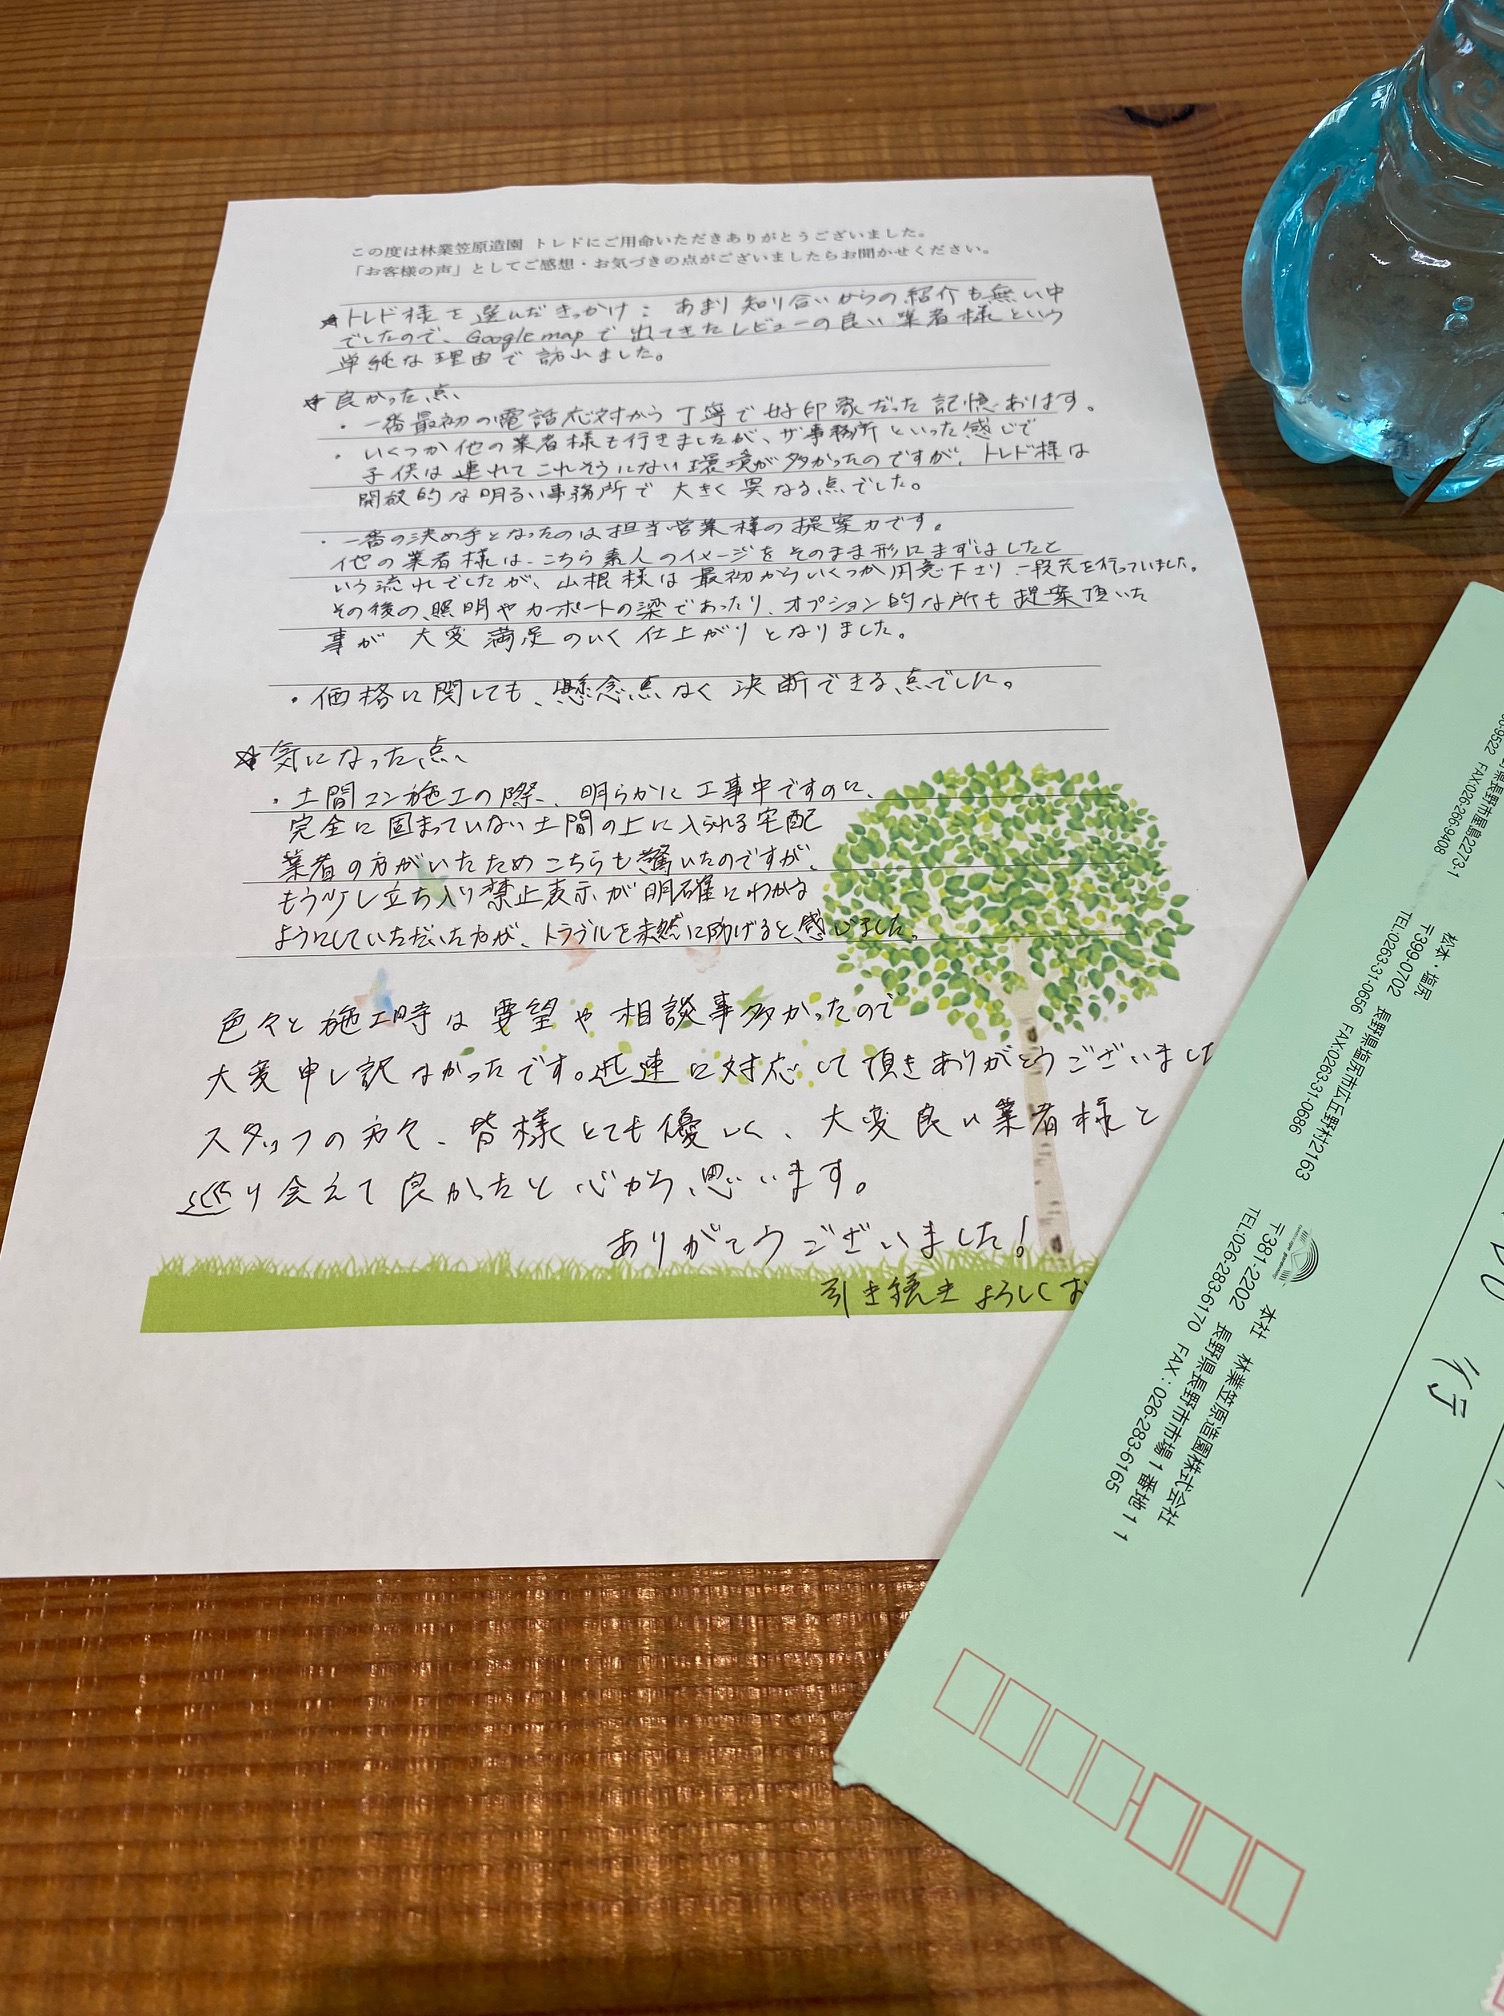 この度は林業笠原造園 トレドにご用命いただきありがとうございました。
「お客様の声」としてご感想・お気づきの点がございましたらお聞かせください。
☆トレド様を選んだきっかけ: あまり知り合いからの紹介も無い中
でしたので、Google mapで出てきたレビューの良い業者様という
単純な理由で訪れました。
☆良かった点
・一番最初の電話応対から丁寧で好印象だった記憶あります。
・いくつか他の業者様も行きましたが、ザ事務所といった感じで
子供は連れてこれそうにない環境が多かったのですが、トレド様は
開放的な明るい事務所で大きく異なる点でした。
・一番の決め手となったのは担当営業様の提案力です。
他の業者様は、こちら素人のイメージをそのまま形にまずはしたと
いう流れでしたが、山根様は最初からいくつか用意下さり一歩先を行っていました。
その後の、照明やカーポートの梁であったり、オプション的な所も提案頂いた
事が大変満足のいく仕上がりとなりました。
・価格に関しても、懸念点なく決断できる点でした。
☆気になった点
・土間コン施工の際、明らかに工事中ですのに、
完全に固まっていない土間の上に入られる宅配
業者の方がいたためこちらも驚いたのですが、
もう少し立ち入り禁止表示が明確にわかる
ようにしていただいた方が、トラブルを未然に防げると感じました。
色々と施工時は要望や相談事多かったので
大変申し訳なかったです。迅速に対応して頂きありがとうございました
スタッフの方々、皆様とても優しく、大変良い業者様と
巡り会えて良かったと心から思います。
ありがとうございました!
引き続きよろしくお
県長野市屋島2273-1
FAX:026-266-9408
松本・塩尻
〒399-0702 長野県塩尻市広丘野村2163
TEL:0263-31-0656 FAX:0263-31-0686
本社 林業笠原造園株式会社
〒381-2202 長野県長野市市場1番地11
TEL:026-283-6170 FAX:026-283-6165
行